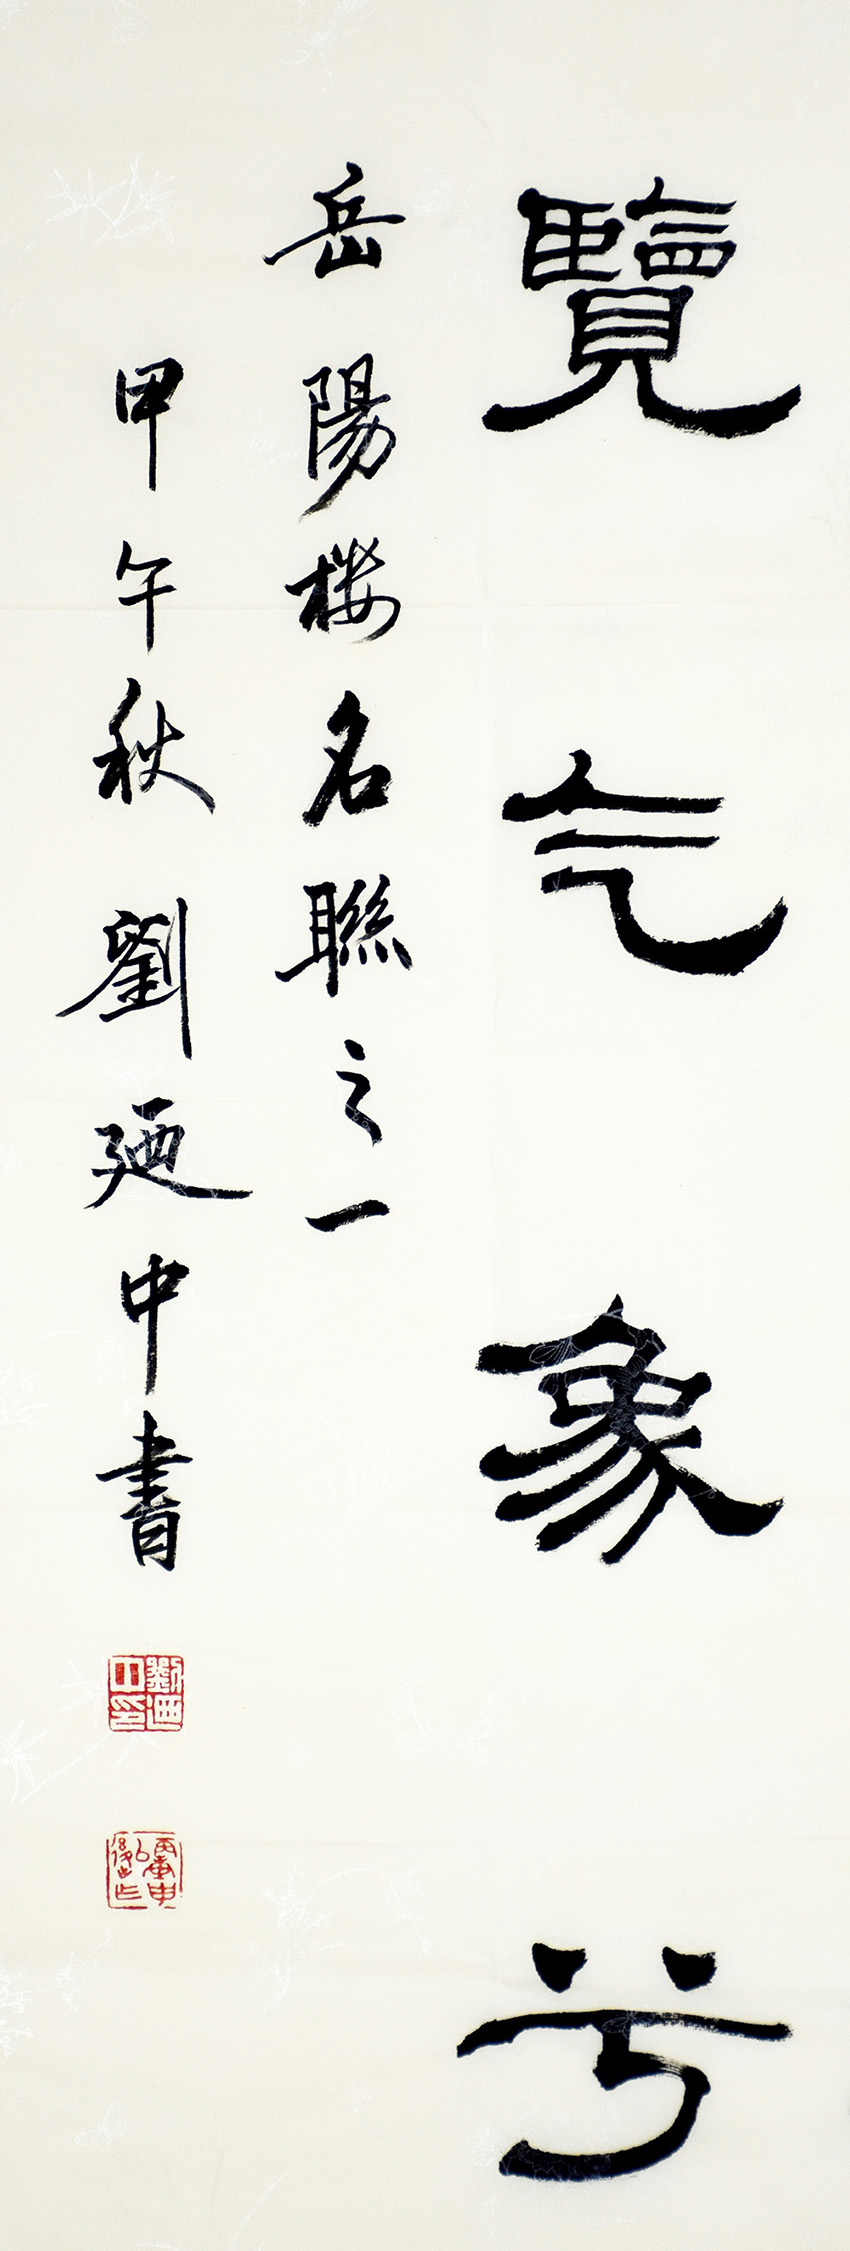 覽气象兮
岳陽楼名聯之一
甲午秋 劉廼中書
劉迺中印